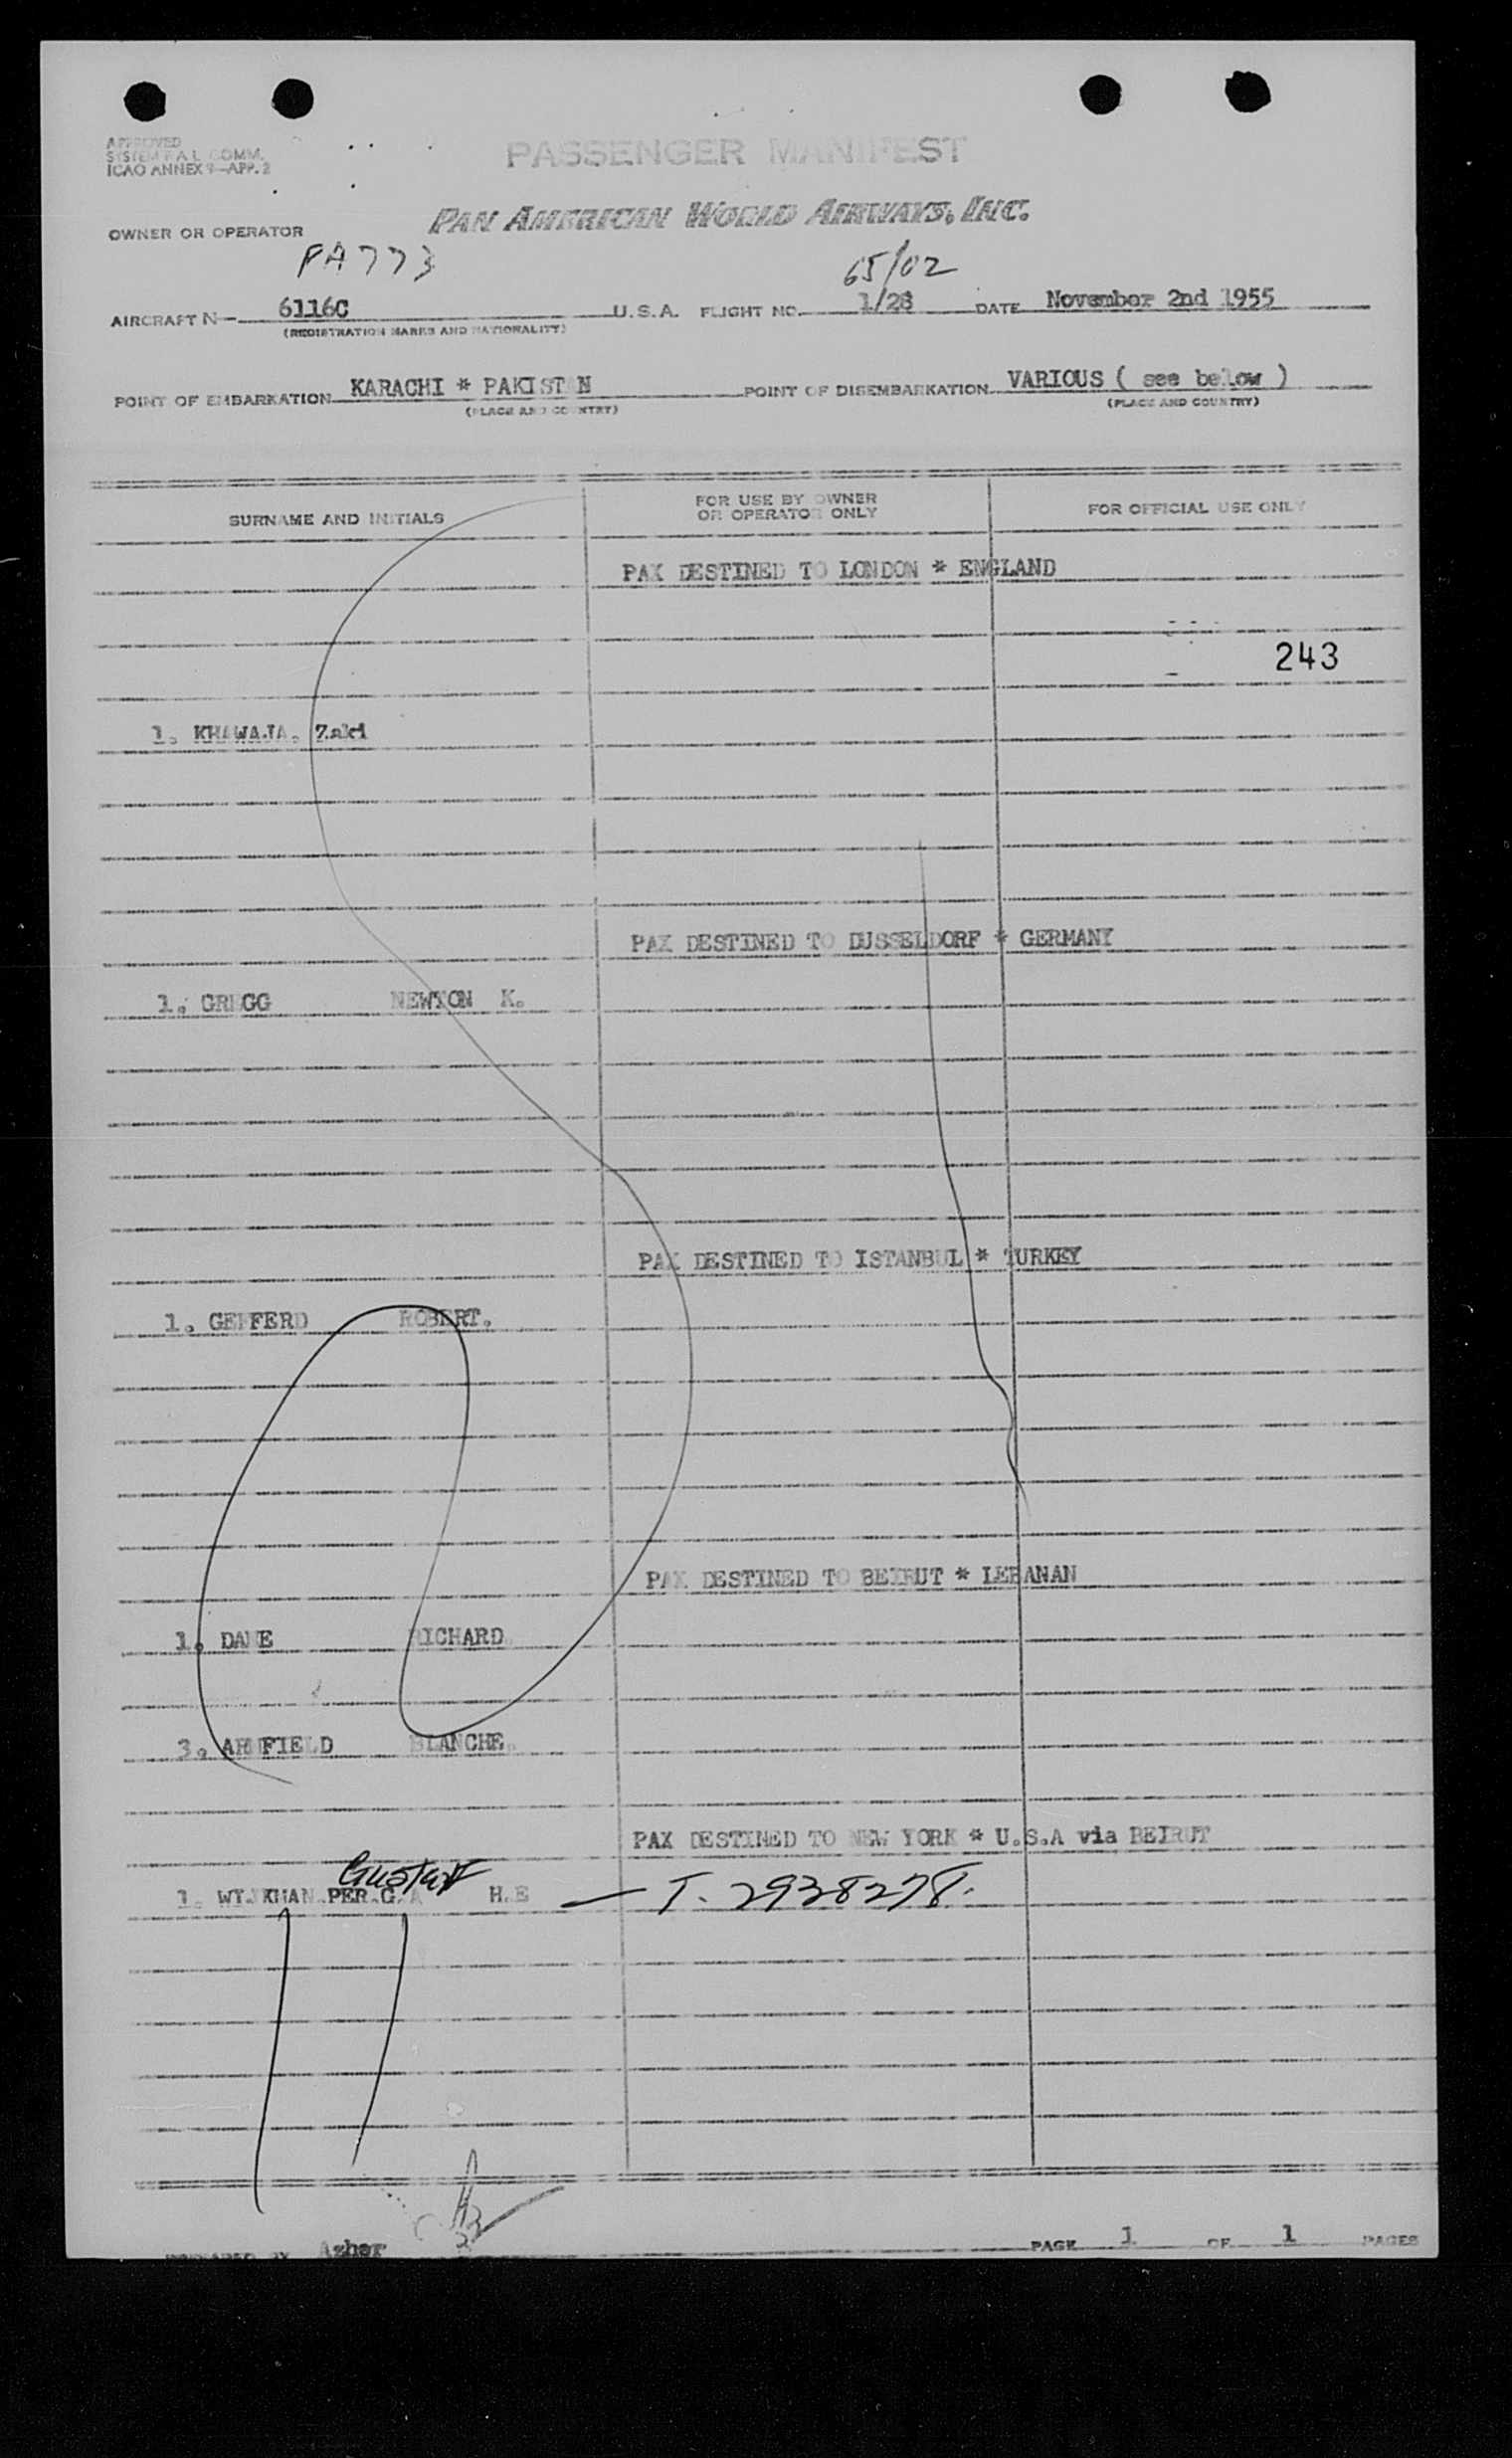 APPROVED
SYSTEM F.A.L. COMM.
ICAO ANNEX 9—APP. 2
PASSENGER MANIFEST
PAN AMERICAN WORLD AIRWAYS, INC.
OWNER OR OPERATOR
PA773
65/02
AIRCRAFT N— 6116C U.S.A. FLIGHT NO. 1/28 DATE November 2nd 1955
(REGISTRATION MARKS AND NATIONALITY)
POINT OF EMBARKATION KARACHI * PAKISTAN POINT OF DISEMBARKATION VARIOUS ( see below )
(PLACE AND COUNTRY) (PLACE AND COUNTRY)
SURNAME AND INITIALS FOR USE BY OWNER OR OPERATOR ONLY FOR OFFICIAL USE ONLY
PAX DESTINED TO LONDON * ENGLAND
243
1. KHAWAJA. Zaki
PAX DESTINED TO DUSSELDORF * GERMANY
1. GREGG NEWTON K.
PAX DESTINED TO ISTANBUL * TURKEY
1. GEFFERD ROBERT.
PAX DESTINED TO BEIRUT * LEBANAN
1. DANE RICHARD
3. ARMFIELD BLANCHE.
PAX DESTINED TO NEW YORK * U.S.A via BEIRUT
Gustaf
1. PER.G.A H.E — T. 2938278.
PREPARED BY Azher PAGE 1 OF 1 PAGES